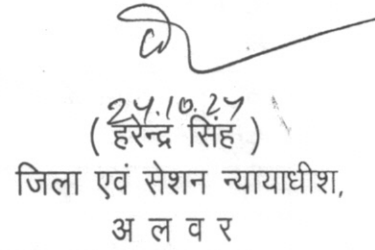 24.10.24
( हरेन्द्र सिंह )
जिला एवं सेशन न्यायाधीश,
अ ल व र